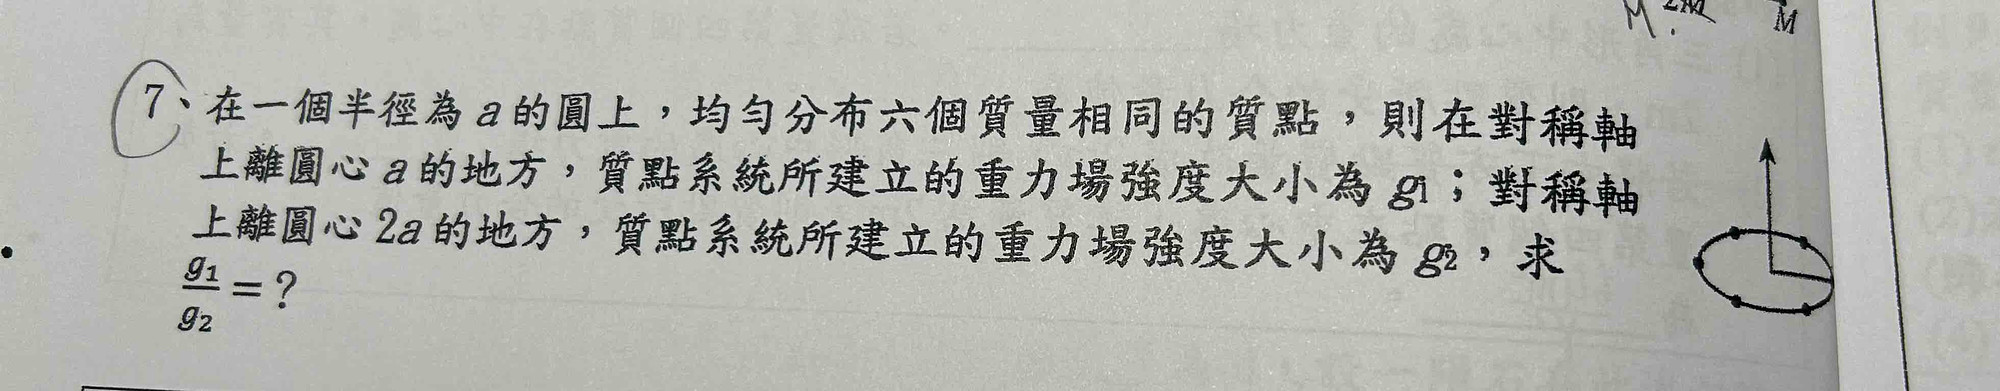 M. 2M M
7、在一個半徑為 a 的圓上，均勻分布六個質量相同的質點，則在對稱軸
上離圓心 a 的地方，質點系統所建立的重力場強度大小為 g1；對稱軸
上離圓心 2a 的地方，質點系統所建立的重力場強度大小為 g2，求
g1/g2 = ?